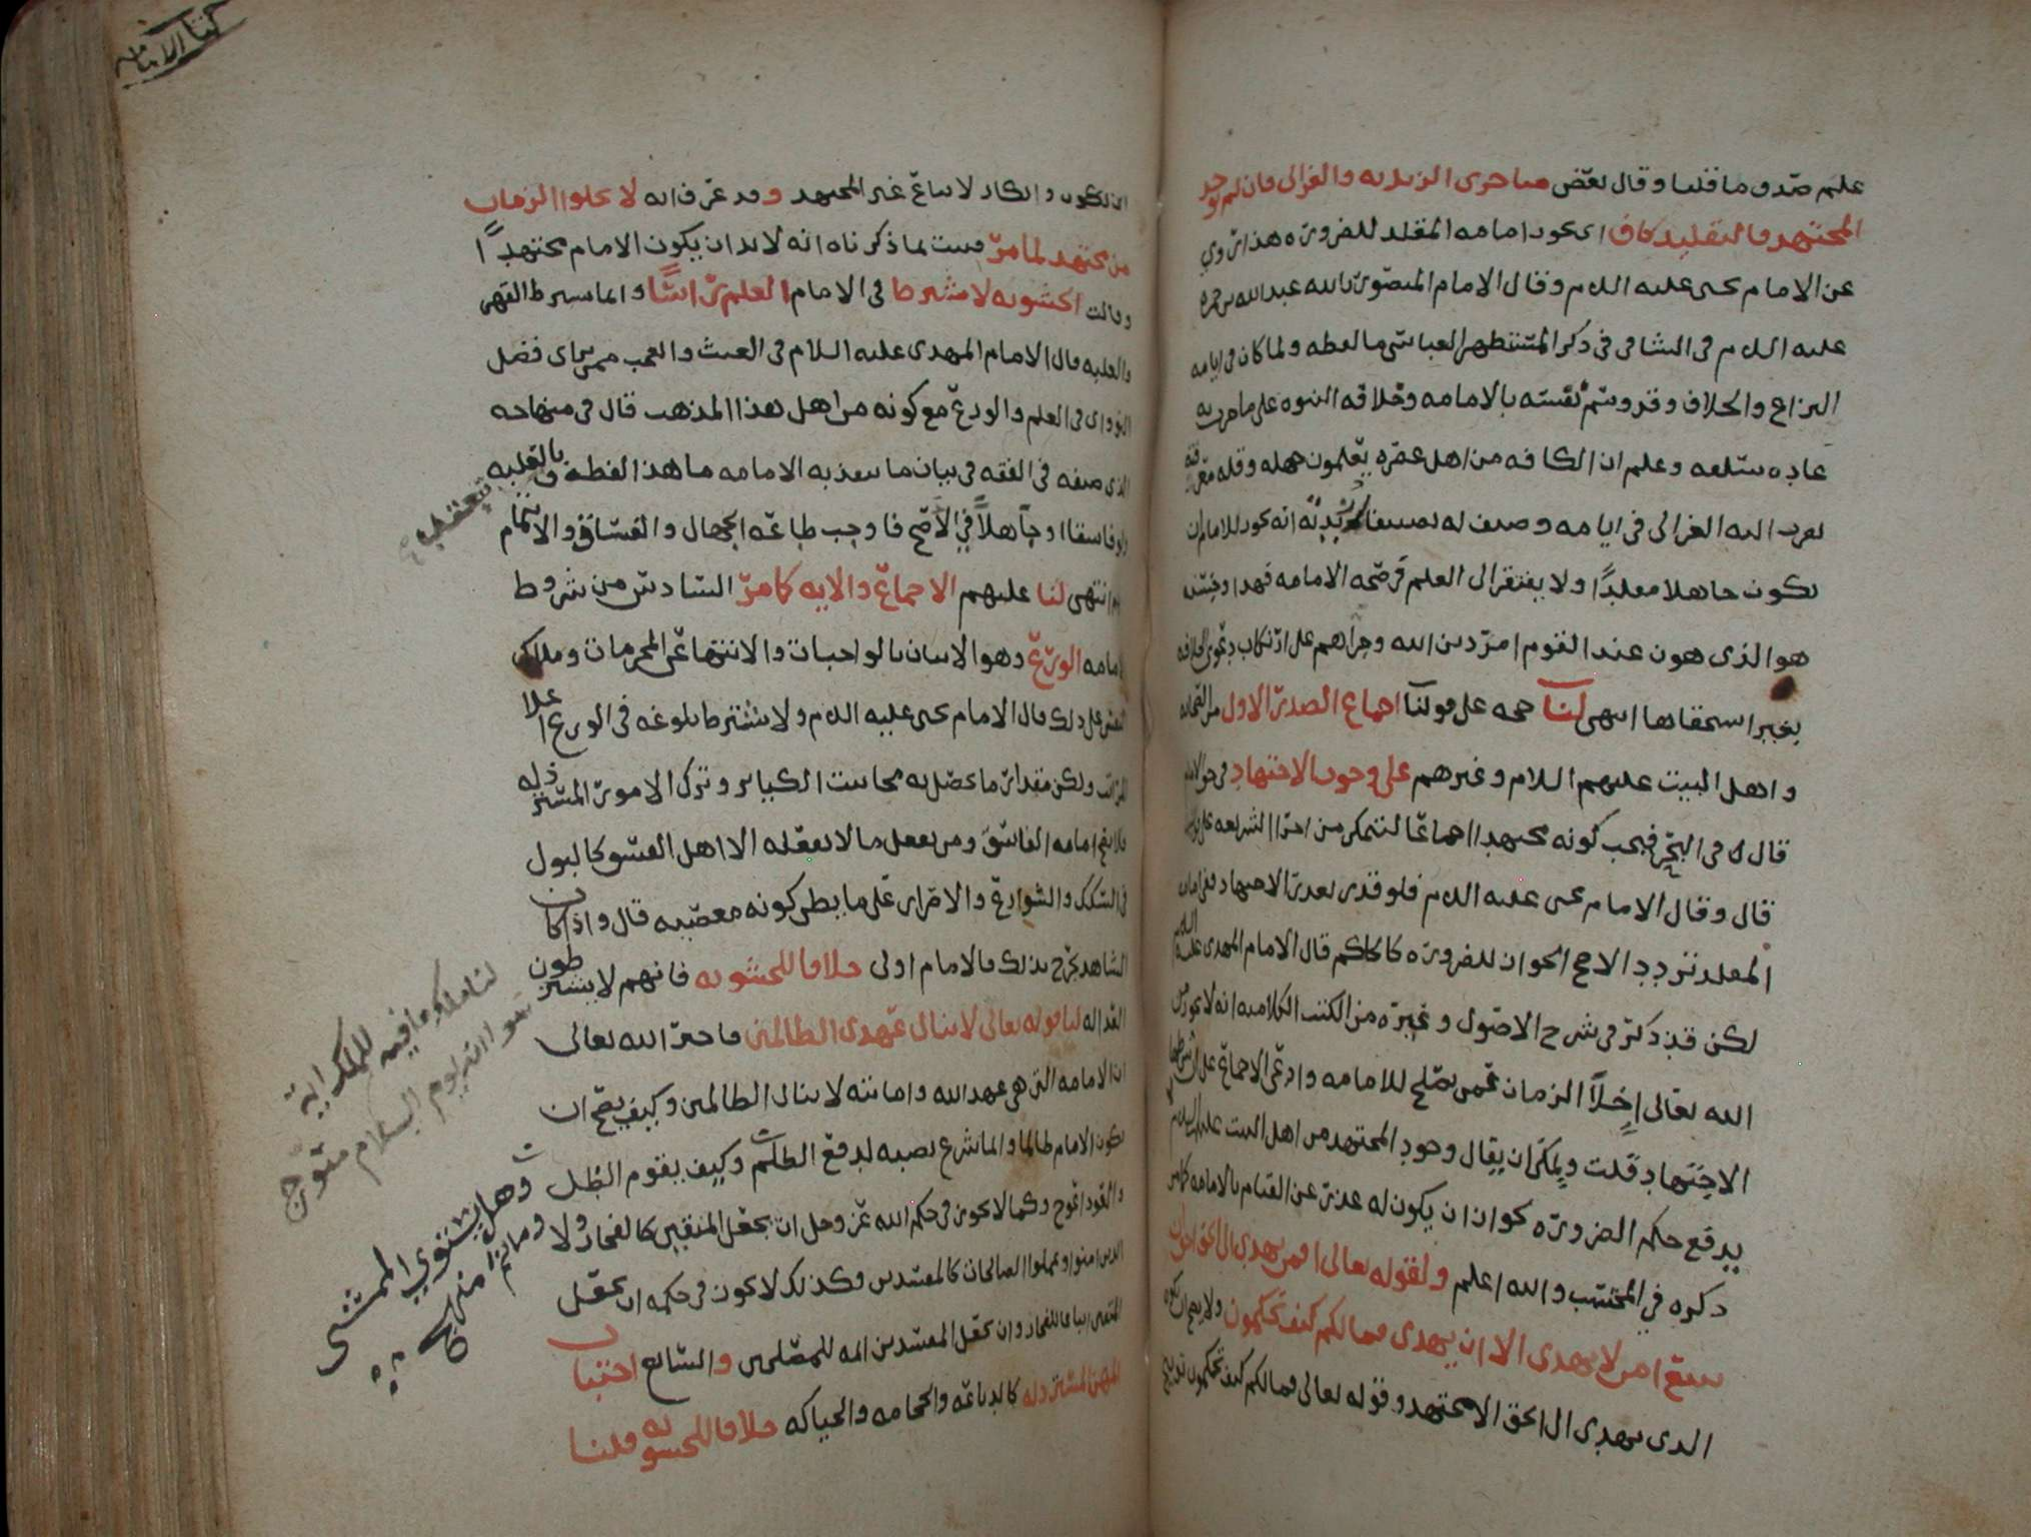 علم صدق ما قلنا وقال بعض متاخرى الزيديه والغزالى فان لم يوجد
المجتهد فالتقليد كاف اى يجوز امامه المقلد للضروره هذا مروي
عن الامام يحيى عليه السلام وقال الامام المنصور بالله عبدالله بن حمزه
عليه السلام فى الشافى فى ذكر المستظهر العباسى ما لفظه ولما كان فى ايامه
النزاع والخلاف وقد وسم نفسه بالامامه وخلافه النبوه على ما جرت به
عاده سلفه وعلم ان الكافه من اهل عصره يعلمون جهله وقله معرفته
تعرب اليه الغزالى فى ايامه وصنف له تصنيفا انه يجوز للامام ان
يكون جاهلا مقلدًا ولا يفتقر الى العلم فى صحه الامامه فهذا وجنسه
هو الذى هون عند القوم امر دين الله وجراهم على ارتكاب دعوى الخلافه
بغير استحقاقها انتهى لنا حجه على قولنا اجماع الصدر الاول من الصحابه
واهل البيت عليهم السلام وغيرهم على وجوب الاجتهاد فى حق الامام
قال فى البحر فيجب كونه مجتهدا اجماعًا لتتمكن من اجرا الشريعه على
قال وقال الامام يحيى عليه السلام فلو قدر تعذر الاجتهاد ففى امامه
المقلد تردد الاصح الجواز للضروره كالحاكم قال الامام المهدى عليه السلام
لكن قد ذكر فى شرح الاصول وغيره من الكتب الكلاميه انه لا يجوز من
الله تعالى اخلا الزمان عمن يصلح للامامه وادعى الاجماع على اشتراط
الاجتهاد قلت ويمكن ان يقال وجود المجتهد من اهل البيت عليهم السلام
يدفع حكم الضروره لجواز ان يكون له عذر عن القيام بالامامه كما مر
ذكره في المحتسب والله اعلم ولقوله تعالى افمن يهدى الى الحق احق ان
يتبع امن لا يهدى الا ان يهدى فما لكم كيف تحكمون ولا يصح ان يكون
الذى يهدى الى الحق الا مجتهد وقوله تعالى فما لكم كيف تحكمون توبيخ
كتاب الامامه
وانكار لاتباع غير المجتهد وقد عرف انه لا يخلوا الزمان
من مجتهد لما مر فثبت لما ذكرناه انه لا بد ان يكون الامام مجتهدًا
وقالت الحشويه لا يشترط فى الامام العلم راسًا وانما يشترط القهر
والغلبه قال الامام المهدى عليه السلام فى الغيث والعجب من يحيى فضل
النواوى فى العلم والورع مع كونه من اهل هذا المذهب قال فى منهاجه
الذى صنفه فى الفقه فى بيان ما تنعقد به الامامه ما هذا لفظه وبالغلبه
ولو فاسقا او جاهلاً في الاصح فاوجب طاعه الجهال والفساق والائتمام
بهم انتهى لنا عليهم الاجماع والايه كما مر السادس من شروط
الامامه الورع وهو الاتيان بالواجبات والانتها عن المحرمات وملاك
النفس على ذلك قال الامام يحيى عليه السلام ولا يشترط بلوغه فى الورع اعلا
المراتب ولكن مقدار ما يحصل به مجانبت الكبائر وترك الامور المسترذله
فلا تصح امامه الفاسق ومن يفعل ما لا يفعله الا اهل الفسق كالبول
فى السكك والشوارع والاصرار على ما يظن كونه معصيه قال واذا كان
الشاهد يجرح بذلك فالامام اولى خلافا للحشويه فانهم لا يشترطون
العداله لنا قوله تعالى لا ينال عهدى الظالمين فاخبر الله تعالى
ان الامامه التى هى عهد الله وامانته لا ينال الظالمين وكيف يصح ان
يكون الامام ظالما وانما شرع نصبه لدفع الظلم وكيف يقوم الظل
والعود اعوج وكما لا يجوز فى حكم الله عز وجل ان يجعل المتقين كالفجار ولا
الذين امنوا وعملوا الصالحات كالمفسدين وكذلك لا يجوز فى حكمه ان يجعل
المتقين اتباعا للفجار وان يجعل المفسدين ائمه للمصلحين والسابع اجتناب
المهن المسترذله كالدباغه والحجامه والحياكه خلافا للحشويه قلنا